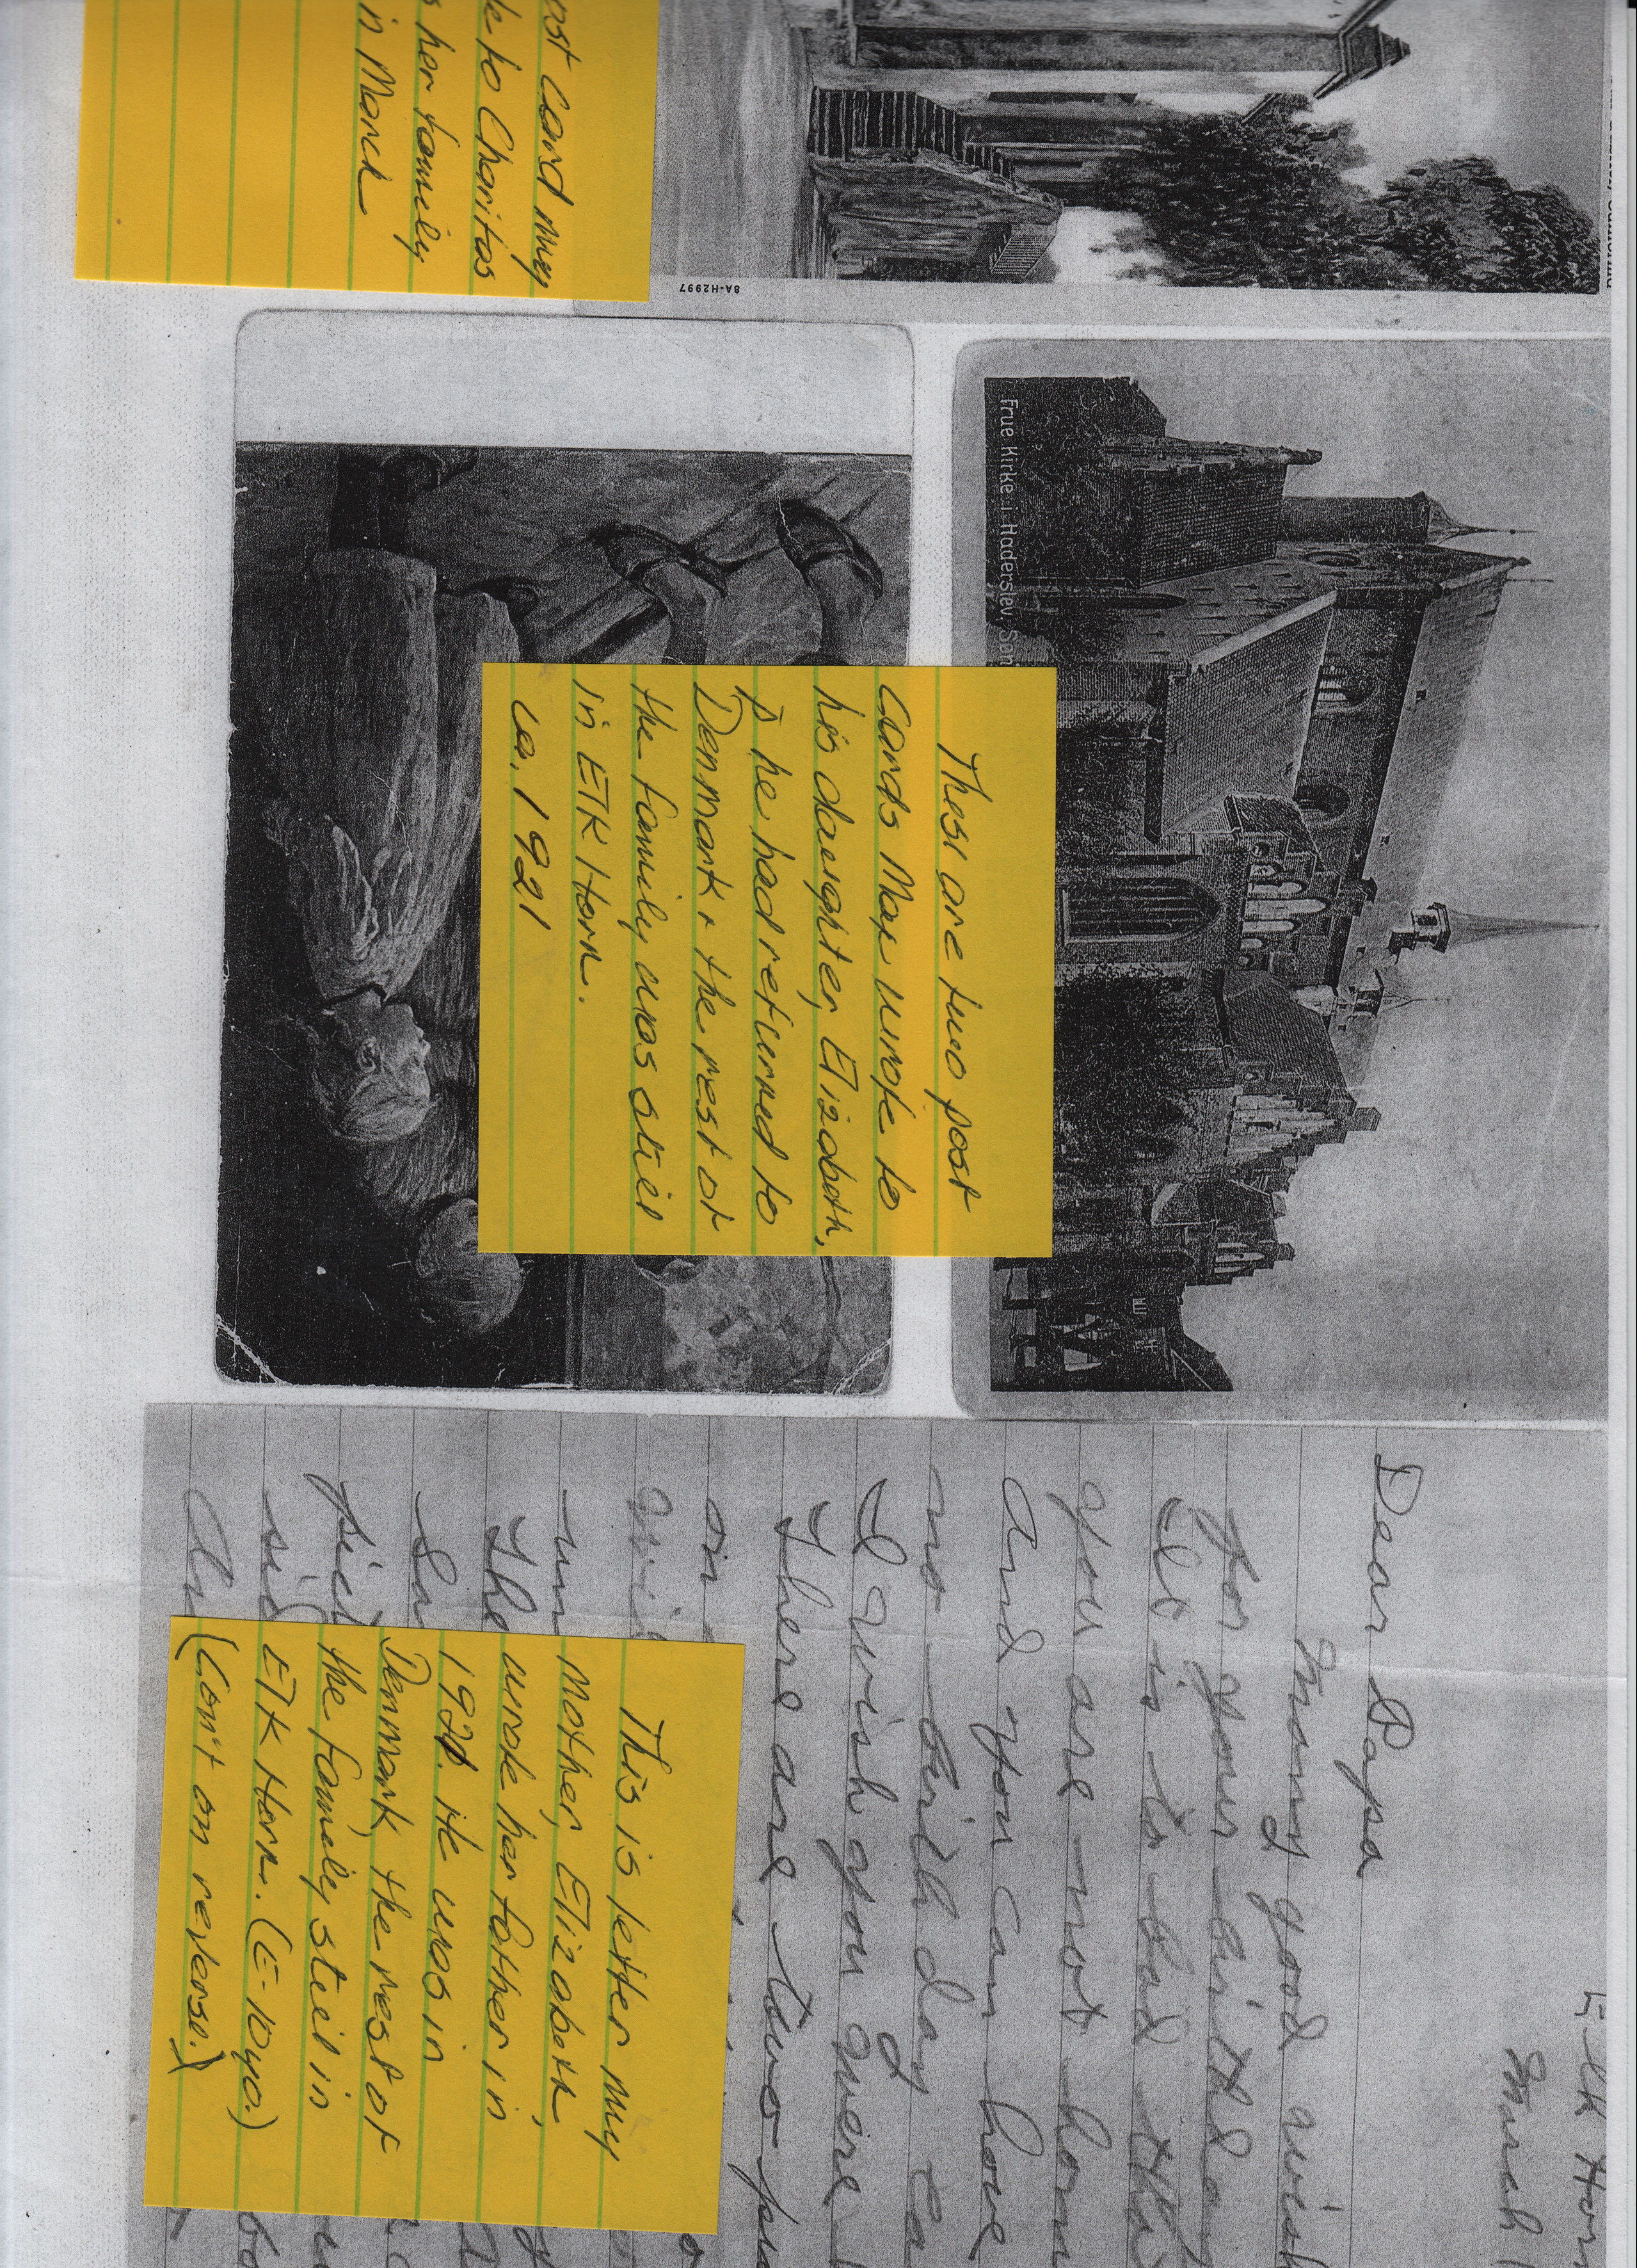 ost card my
e to Charitas
s her family
in March
8A-H2997
Frue Kirke i Haderslev, Søn
These are two post
cards Max wrote to
his daughter, Elizabeth,
p he had returned to
Denmark & the rest of
the family was still
in Elk Horn.
ca. 1921
Elk Hor
March
Dear Papa
Many good wish
for your birthday
It is to bad tha
you are not hom
and you can have
no birthday ca
I wish you were
There are two pu
on
un
The
pict
This is letter my
mother, Elizabeth,
wrote her father in
1921. He was in
Denmark, the rest of
the family still in
Elk Horn. (E-10yo.)
(Con't on reverse.)